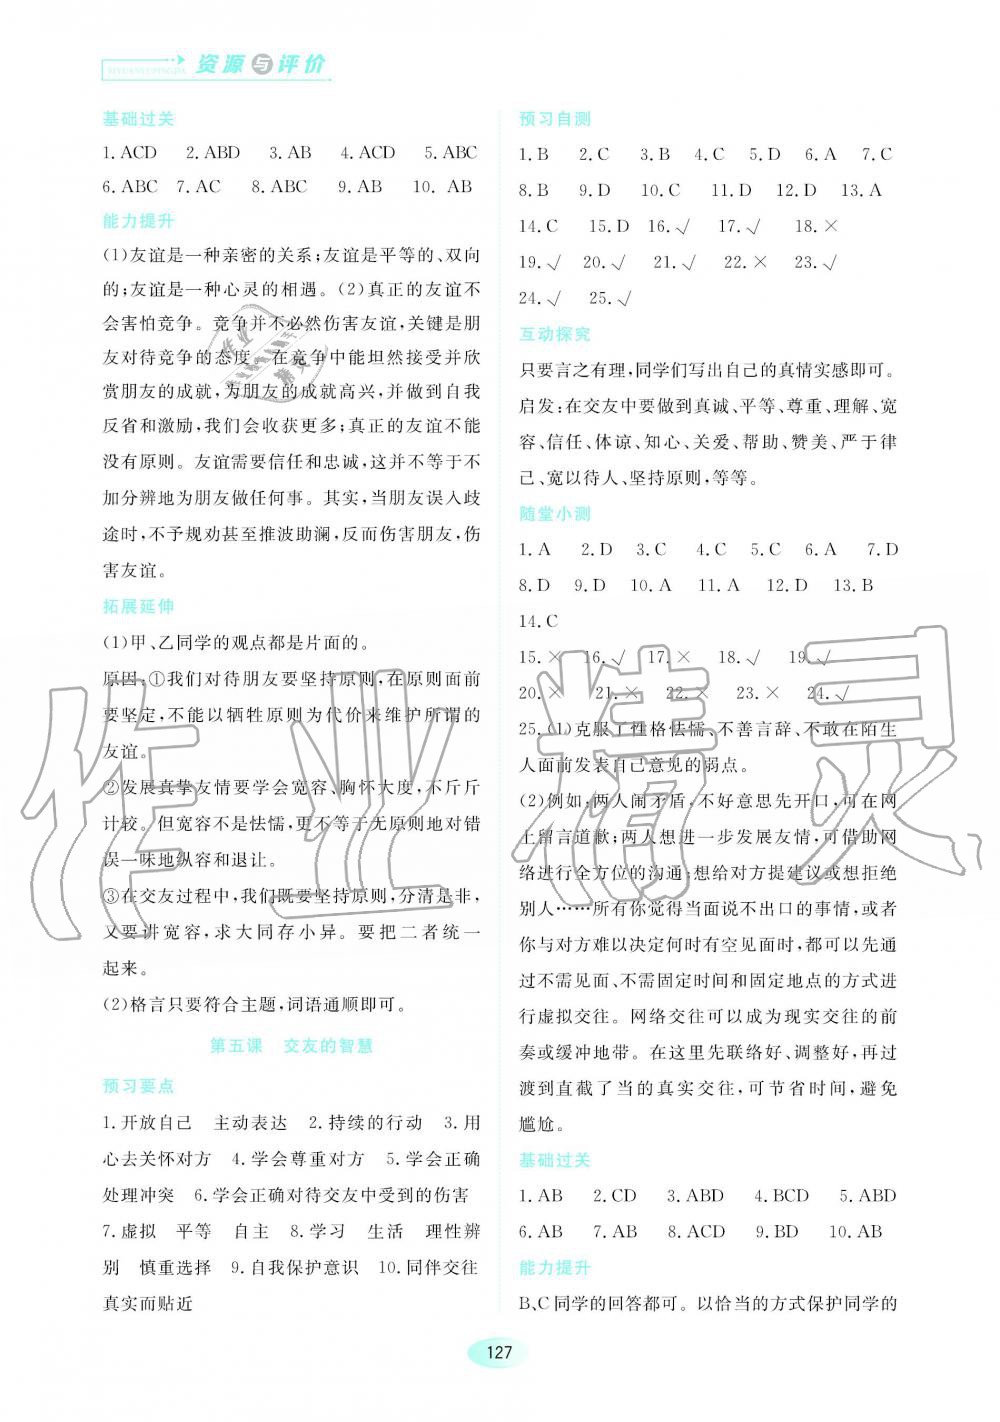 ZIYUANYUPINGJIA
资源与评价
基础过关
1. ACD 2. ABD 3. AB 4. ACD 5. ABC
6. ABC 7. AC 8. ABC 9. AB 10. AB
能力提升
(1)友谊是一种亲密的关系;友谊是平等的、双向
的;友谊是一种心灵的相遇。(2)真正的友谊不
会害怕竞争。竞争并不必然伤害友谊,关键是朋
友对待竞争的态度。在竞争中能坦然接受并欣
赏朋友的成就,为朋友的成就高兴,并做到自我
反省和激励,我们会收获更多;真正的友谊不能
没有原则。友谊需要信任和忠诚,这并不等于不
加分辨地为朋友做任何事。其实,当朋友误入歧
途时,不予规劝甚至推波助澜,反而伤害朋友,伤
害友谊。
拓展延伸
(1)甲、乙同学的观点都是片面的。
原因:①我们对待朋友要坚持原则,在原则面前
要坚定,不能以牺牲原则为代价来维护所谓的
友谊。
②发展真挚友情要学会宽容、胸怀大度,不斤斤
计较。但宽容不是怯懦,更不等于无原则地对错
误一味地纵容和退让。
③在交友过程中,我们既要坚持原则,分清是非,
又要讲宽容,求大同存小异。要把二者统一
起来。
(2)格言只要符合主题,词语通顺即可。
第五课 交友的智慧
预习要点
1. 开放自己 主动表达 2. 持续的行动 3. 用
心去关怀对方 4. 学会尊重对方 5. 学会正确
处理冲突 6. 学会正确对待交友中受到的伤害
7. 虚拟 平等 自主 8. 学习 生活 理性辨
别 慎重选择 9. 自我保护意识 10. 同伴交往
真实而贴近
预习自测
1. B 2. C 3. B 4. C 5. D 6. A 7. C
8. B 9. D 10. C 11. D 12. D 13. A
14. C 15. D 16. √ 17. √ 18. ×
19. √ 20. √ 21. √ 22. × 23. √
24. √ 25. √
互动探究
只要言之有理,同学们写出自己的真情实感即可。
启发:在交友中要做到真诚、平等、尊重、理解、宽
容、信任、体谅、知心、关爱、帮助、赞美、严于律
己、宽以待人、坚持原则,等等。
随堂小测
1. A 2. D 3. C 4. C 5. C 6. A 7. D
8. D 9. D 10. A 11. A 12. D 13. B
14. C
15. × 16. √ 17. × 18. √ 19. √
20. × 21. × 22. × 23. × 24. √
25. (1)克服了性格怯懦、不善言辞、不敢在陌生
人面前发表自己意见的弱点。
(2)例如:两人闹矛盾,不好意思先开口,可在网
上留言道歉;两人想进一步发展友情,可借助网
络进行全方位的沟通;想给对方提建议或想拒绝
别人……所有你觉得当面说不出口的事情,或者
你与对方难以决定何时有空见面时,都可以先通
过不需见面、不需固定时间和固定地点的方式进
行虚拟交往。网络交往可以成为现实交往的前
奏或缓冲地带。在这里先联络好、调整好,再过
渡到直截了当的真实交往,可节省时间,避免
尴尬。
基础过关
1. AB 2. CD 3. ABD 4. BCD 5. ABD
6. AB 7. AB 8. ACD 9. BD 10. AB
能力提升
B、C同学的回答都可。以恰当的方式保护同学的
127
作业精灵